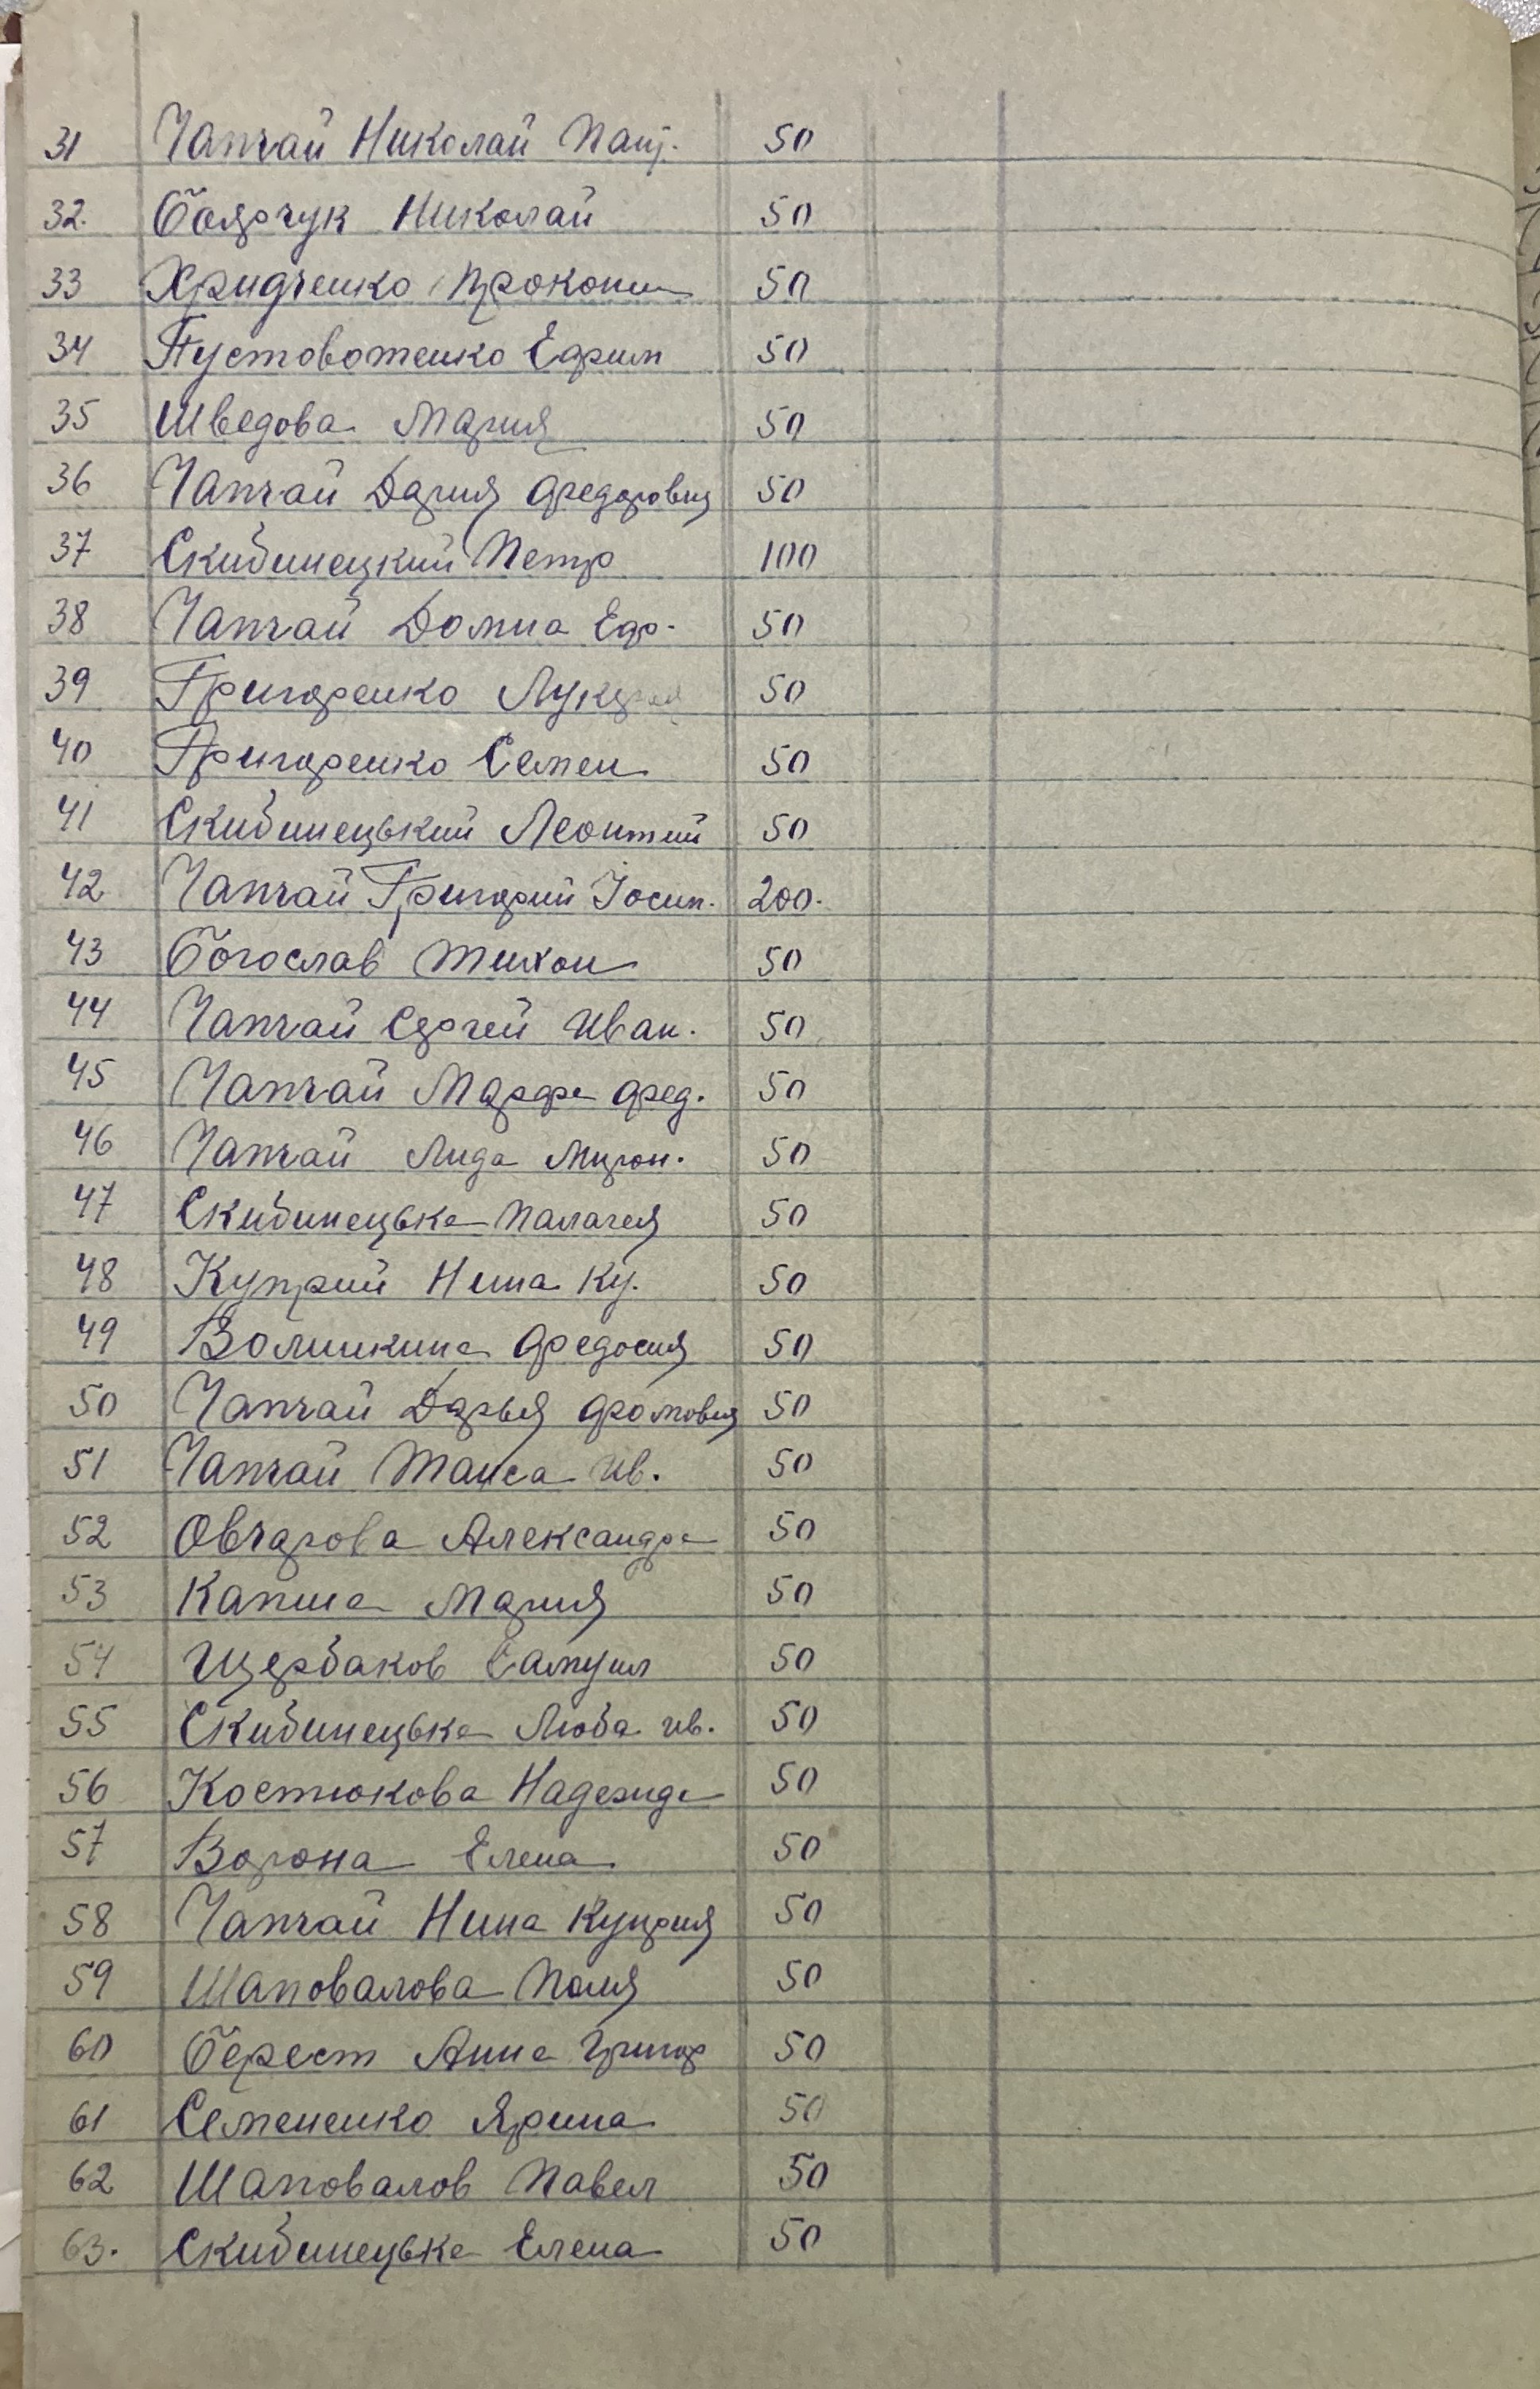 31 Чапчай Николай Пант. 50
32. Боярчук Николай 50
33 Хридченко Прокопи 50
34 Пустовотенко Ефим 50
35 Шведова Мария 50
36 Чапчай Дария Федоровня 50
37 Скибинецкий Петр 100
38 Чапчай Домна Еф. 50
39 Григоренко Лукерия 50
40 Григоренко Семен 50
41 Скибинецький Леонтий 50
42 Чапчай Григорий Іосип. 200.
43 Богослав Тихон 50
44 Чапчай Сергей Иван. 50
45 Чапчай Марфа Фед. 50
46 Чапчай Лида Мирон. 50
47 Скибинецька Палагея 50
48 Куприй Нина Ку. 50
49 Волишкина Федосия 50
50 Чапчай Дарья Фомовня 50
51 Чапчай Таиса Ив. 50
52 Овчарова Александра 50
53 Капша Мария 50
54 Щербаков Самуил 50
55 Скибинецька Люба ив. 50
56 Костюкова Надежда 50
57 Ворона Елена 50
58 Чапчай Нина Куприя 50
59 Шаповалова Поля 50
60 Берест Анна Григор 50
61 Семененко Ярина 50
62 Шаповалов Павел 50
63. Скибинецька Елена 50